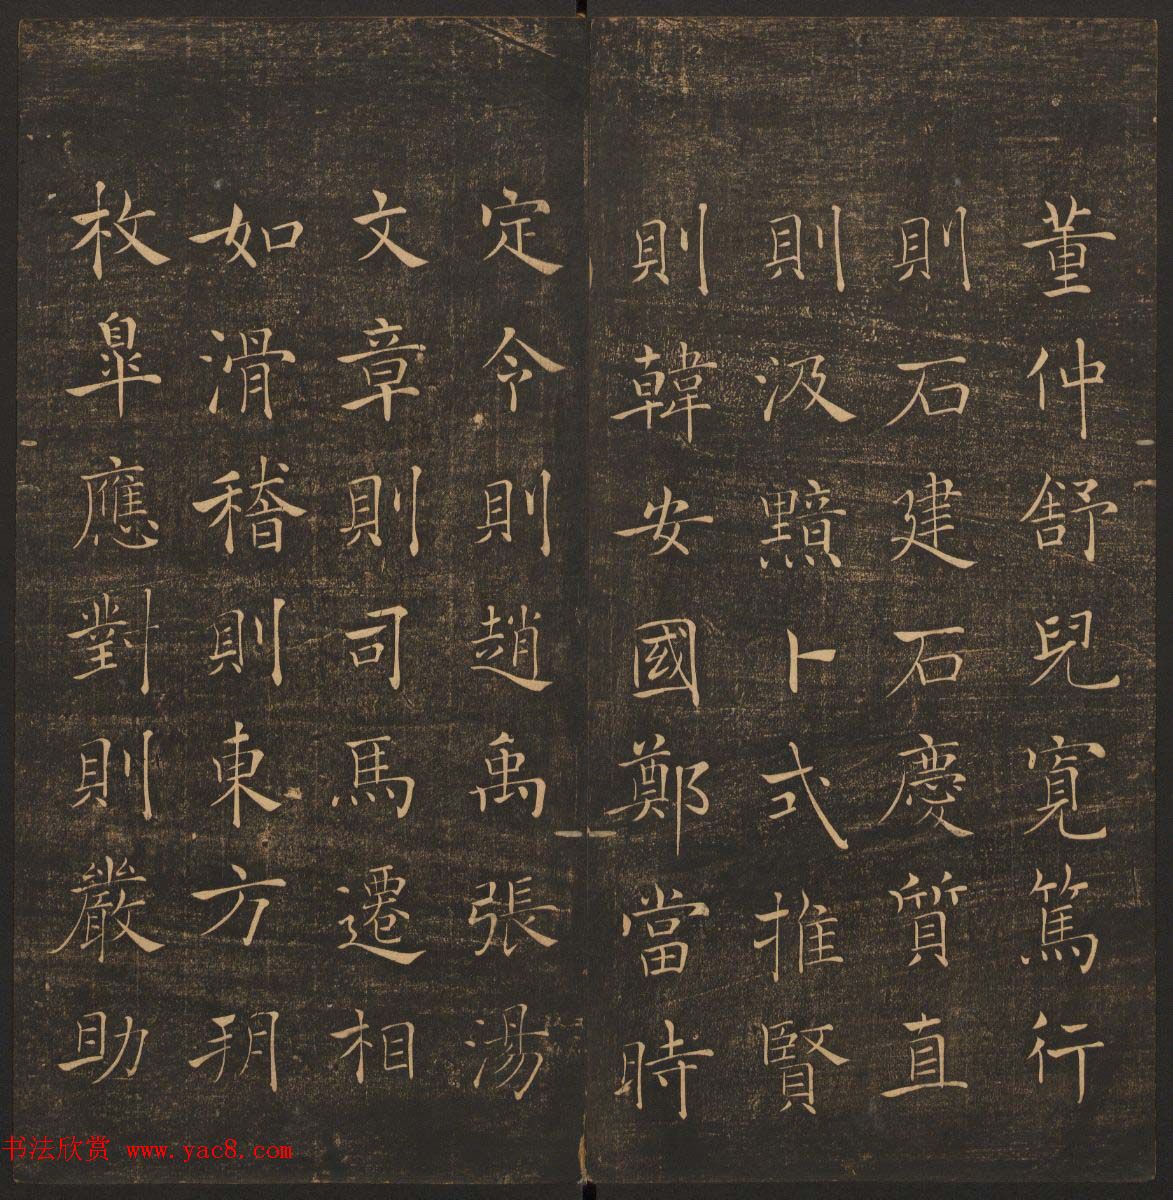 董仲舒兒寬篤行
則石建石慶質直
則汲黯卜式推賢
則韓安國鄭當時
定令則趙禹張湯
文章則司馬遷相
如滑稽則東方朔
枚臯應對則嚴助
书法欣赏 www.yac8.com